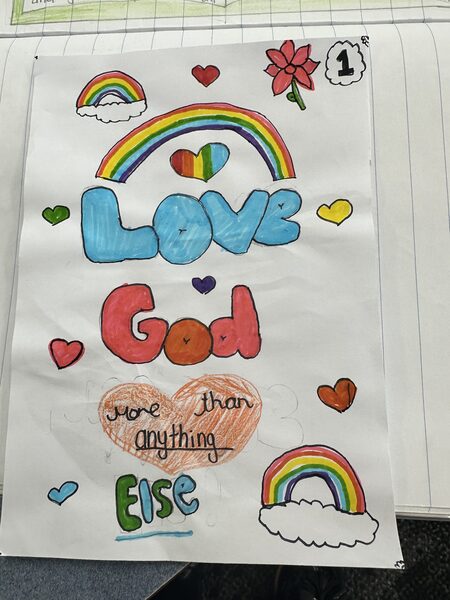 1
Love
God
more than
anything
Else